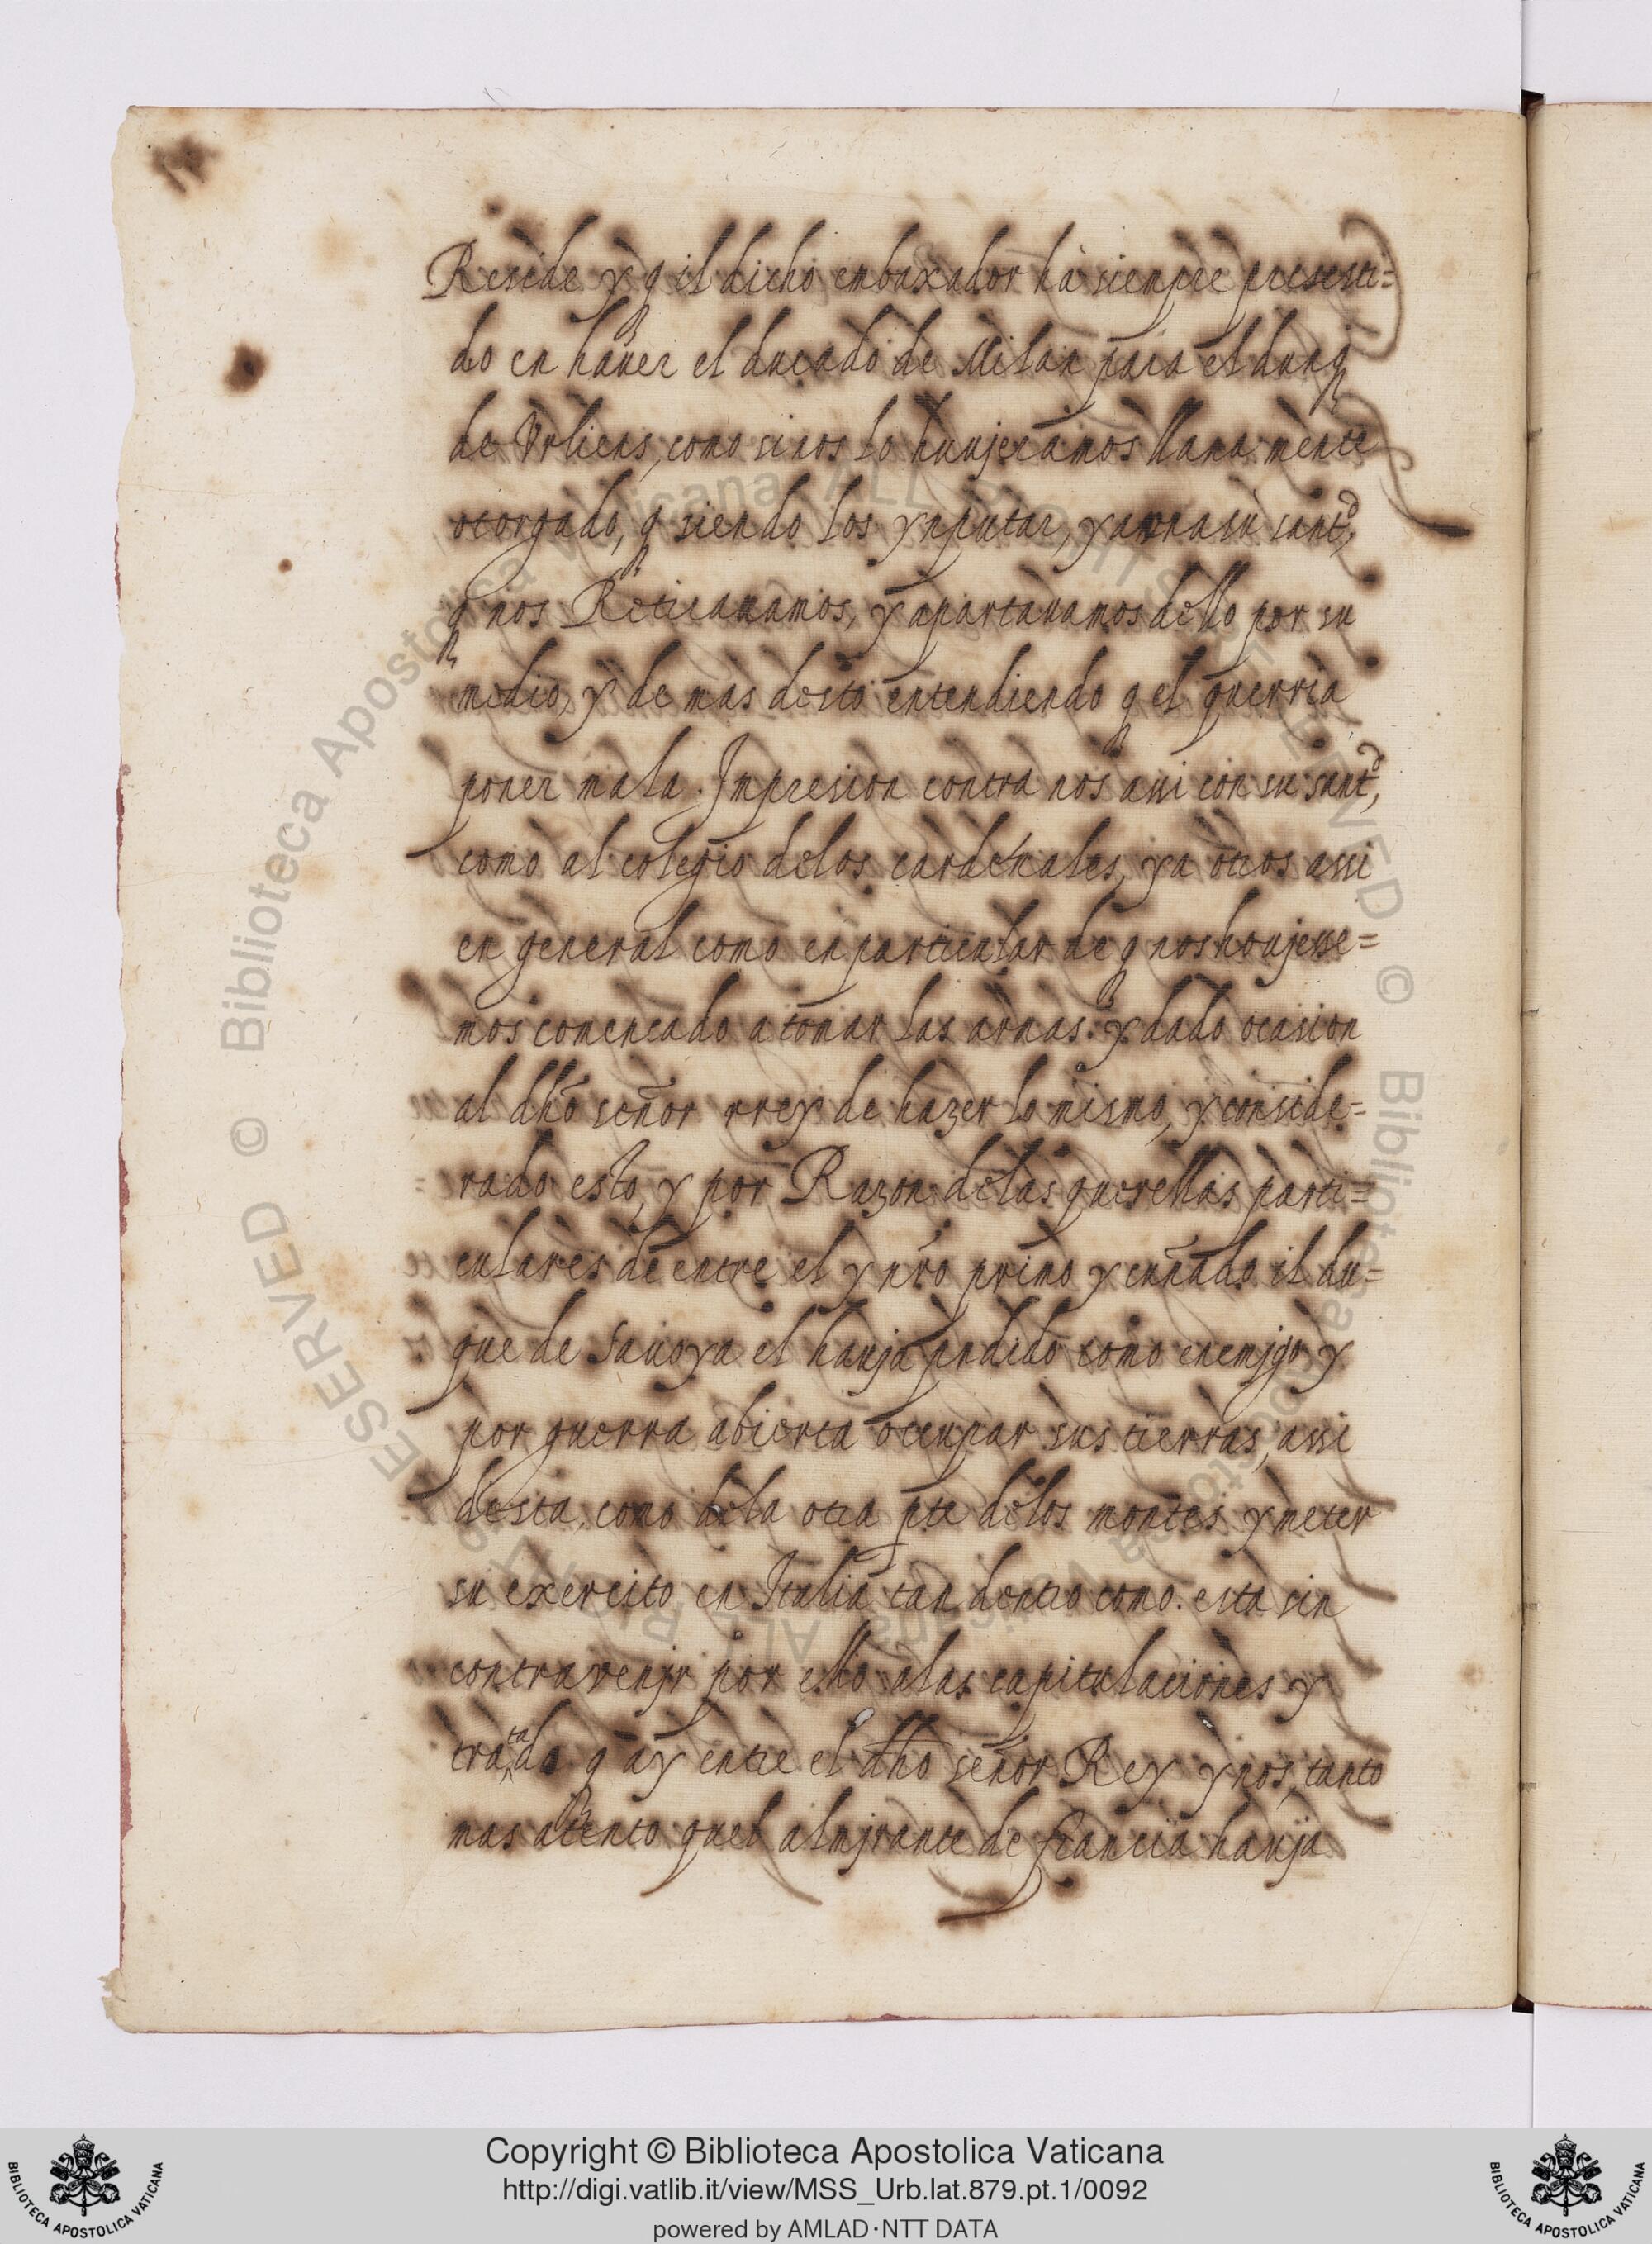 Reside y q̃ el dicho embaxador hà siempre presesti=
do en hauer el ducado de Milan para el duuq̃
de Vrliens, como si nos lo huujeramos llana mente
otorgado, q̃ siendo los ynputar, y a su santᵈ,
q̃ nos Retirauamos, y apartauamos dello por su
medio, y de mas desto entendiendo q̃ el querria
poner mala Impresion contra nos assi con su santᵈ,
como al colegio delos cardenales, y a otros assi
en general como en particular de q̃ nos houjesse=
mos comencado a tomar las armas. y dado ocasion
al dhõ señor rrey de hazer lo mismo, y conside=
rado esto, y por Razon delas querellas parti=
culares de entre el y nr̃o primo y cuñado el du=
que de Sauoya el hauja podido como enemjgo y
por guerra abierta occupar sus tierras, assi
desta, como dela otra pte delos montes y meter
su exercito en Italia tan dentro como esta sin
contravenjr por ello alas capitulaciones y
tratado q̃ ay entre el dhõ señor Rey y nos, tanto
mas atento quel almjrante de francia hauja
© Biblioteca Apostolica Vaticana ALL RIGHTS RESERVED © Biblioteca Apostolica Vaticana ALL RIGHTS RESERVED
Copyright © Biblioteca Apostolica Vaticana
http://digi.vatlib.it/view/MSS_Urb.lat.879.pt.1/0092
powered by AMLAD·NTT DATA
BIBLIOTECA APOSTOLICA VATICANA
BIBLIOTECA APOSTOLICA VATICANA